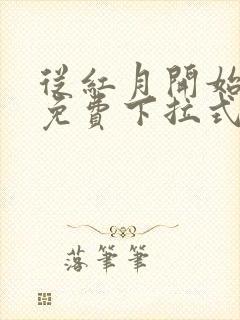 從紅月開始
免費下拉式
落筆筆